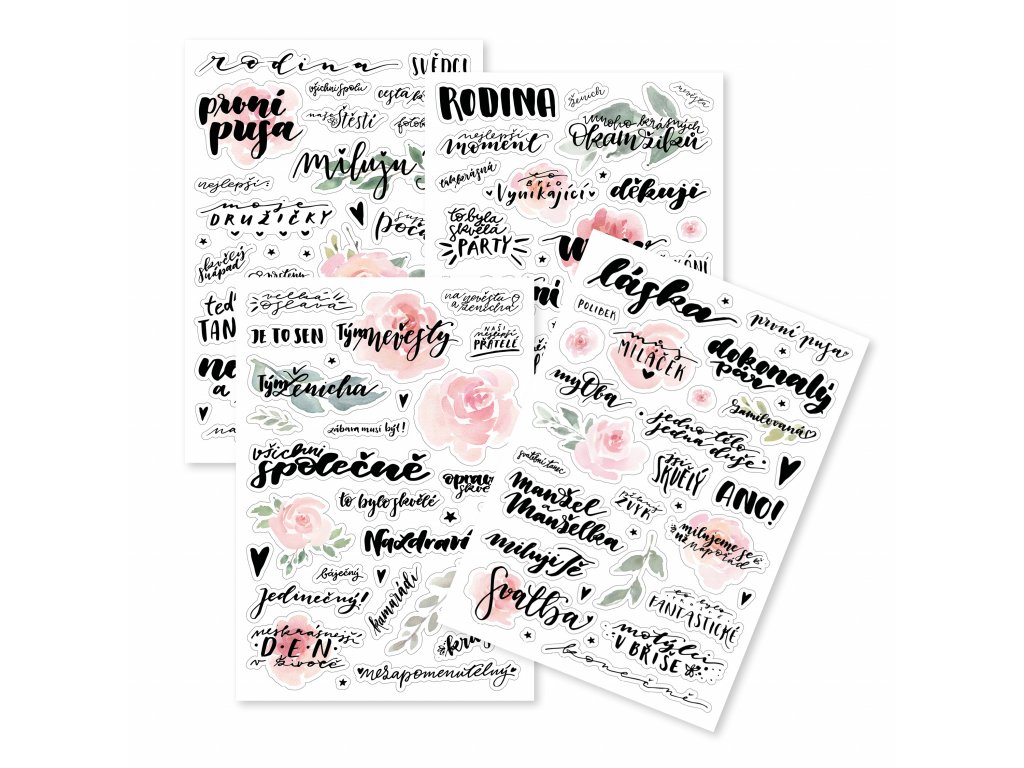 rodina
SVĚDCI
první
pusa
všichni spolu
naše Štěstí
miluju
nejlepší:
moje
DRUŽIČKY
skvělý
nápad
teď
a
RODINA
ženich
nevěsta
nejlepší
moment
mnoho krásných
okamžiků
to
BYLO
Vynikající
děkuji
to byla
skvělá
PÁRTY
velká
oslava
na nevěstu
a ženicha
JE TO SEN
Tým nevěsty
NAŠI
nejlepší
PŘÁTELÉ
Tým Ženicha
zábava musí být!
všichni
společně
to bylo skvělé
Na zdraví
báječný
Jedinečný!
kamarádi
nejkrásnější
DEN
v životě
nezapomenutelný
láska
POLIBEK
první pusa
můj
MILÁČEK
dokonalý
pár
my dva
zamilovaná
jedno tělo
jedna duše
svatební tanec
Jsi
SKVĚLÝ
ZVYK
ANO!
manžel
a
Manželka
milujeme se
NAPOŘÁD
miluji Tě
Svatba
to bylo
FANTASTICKÉ
motýli
V BŘIŠE
konečně